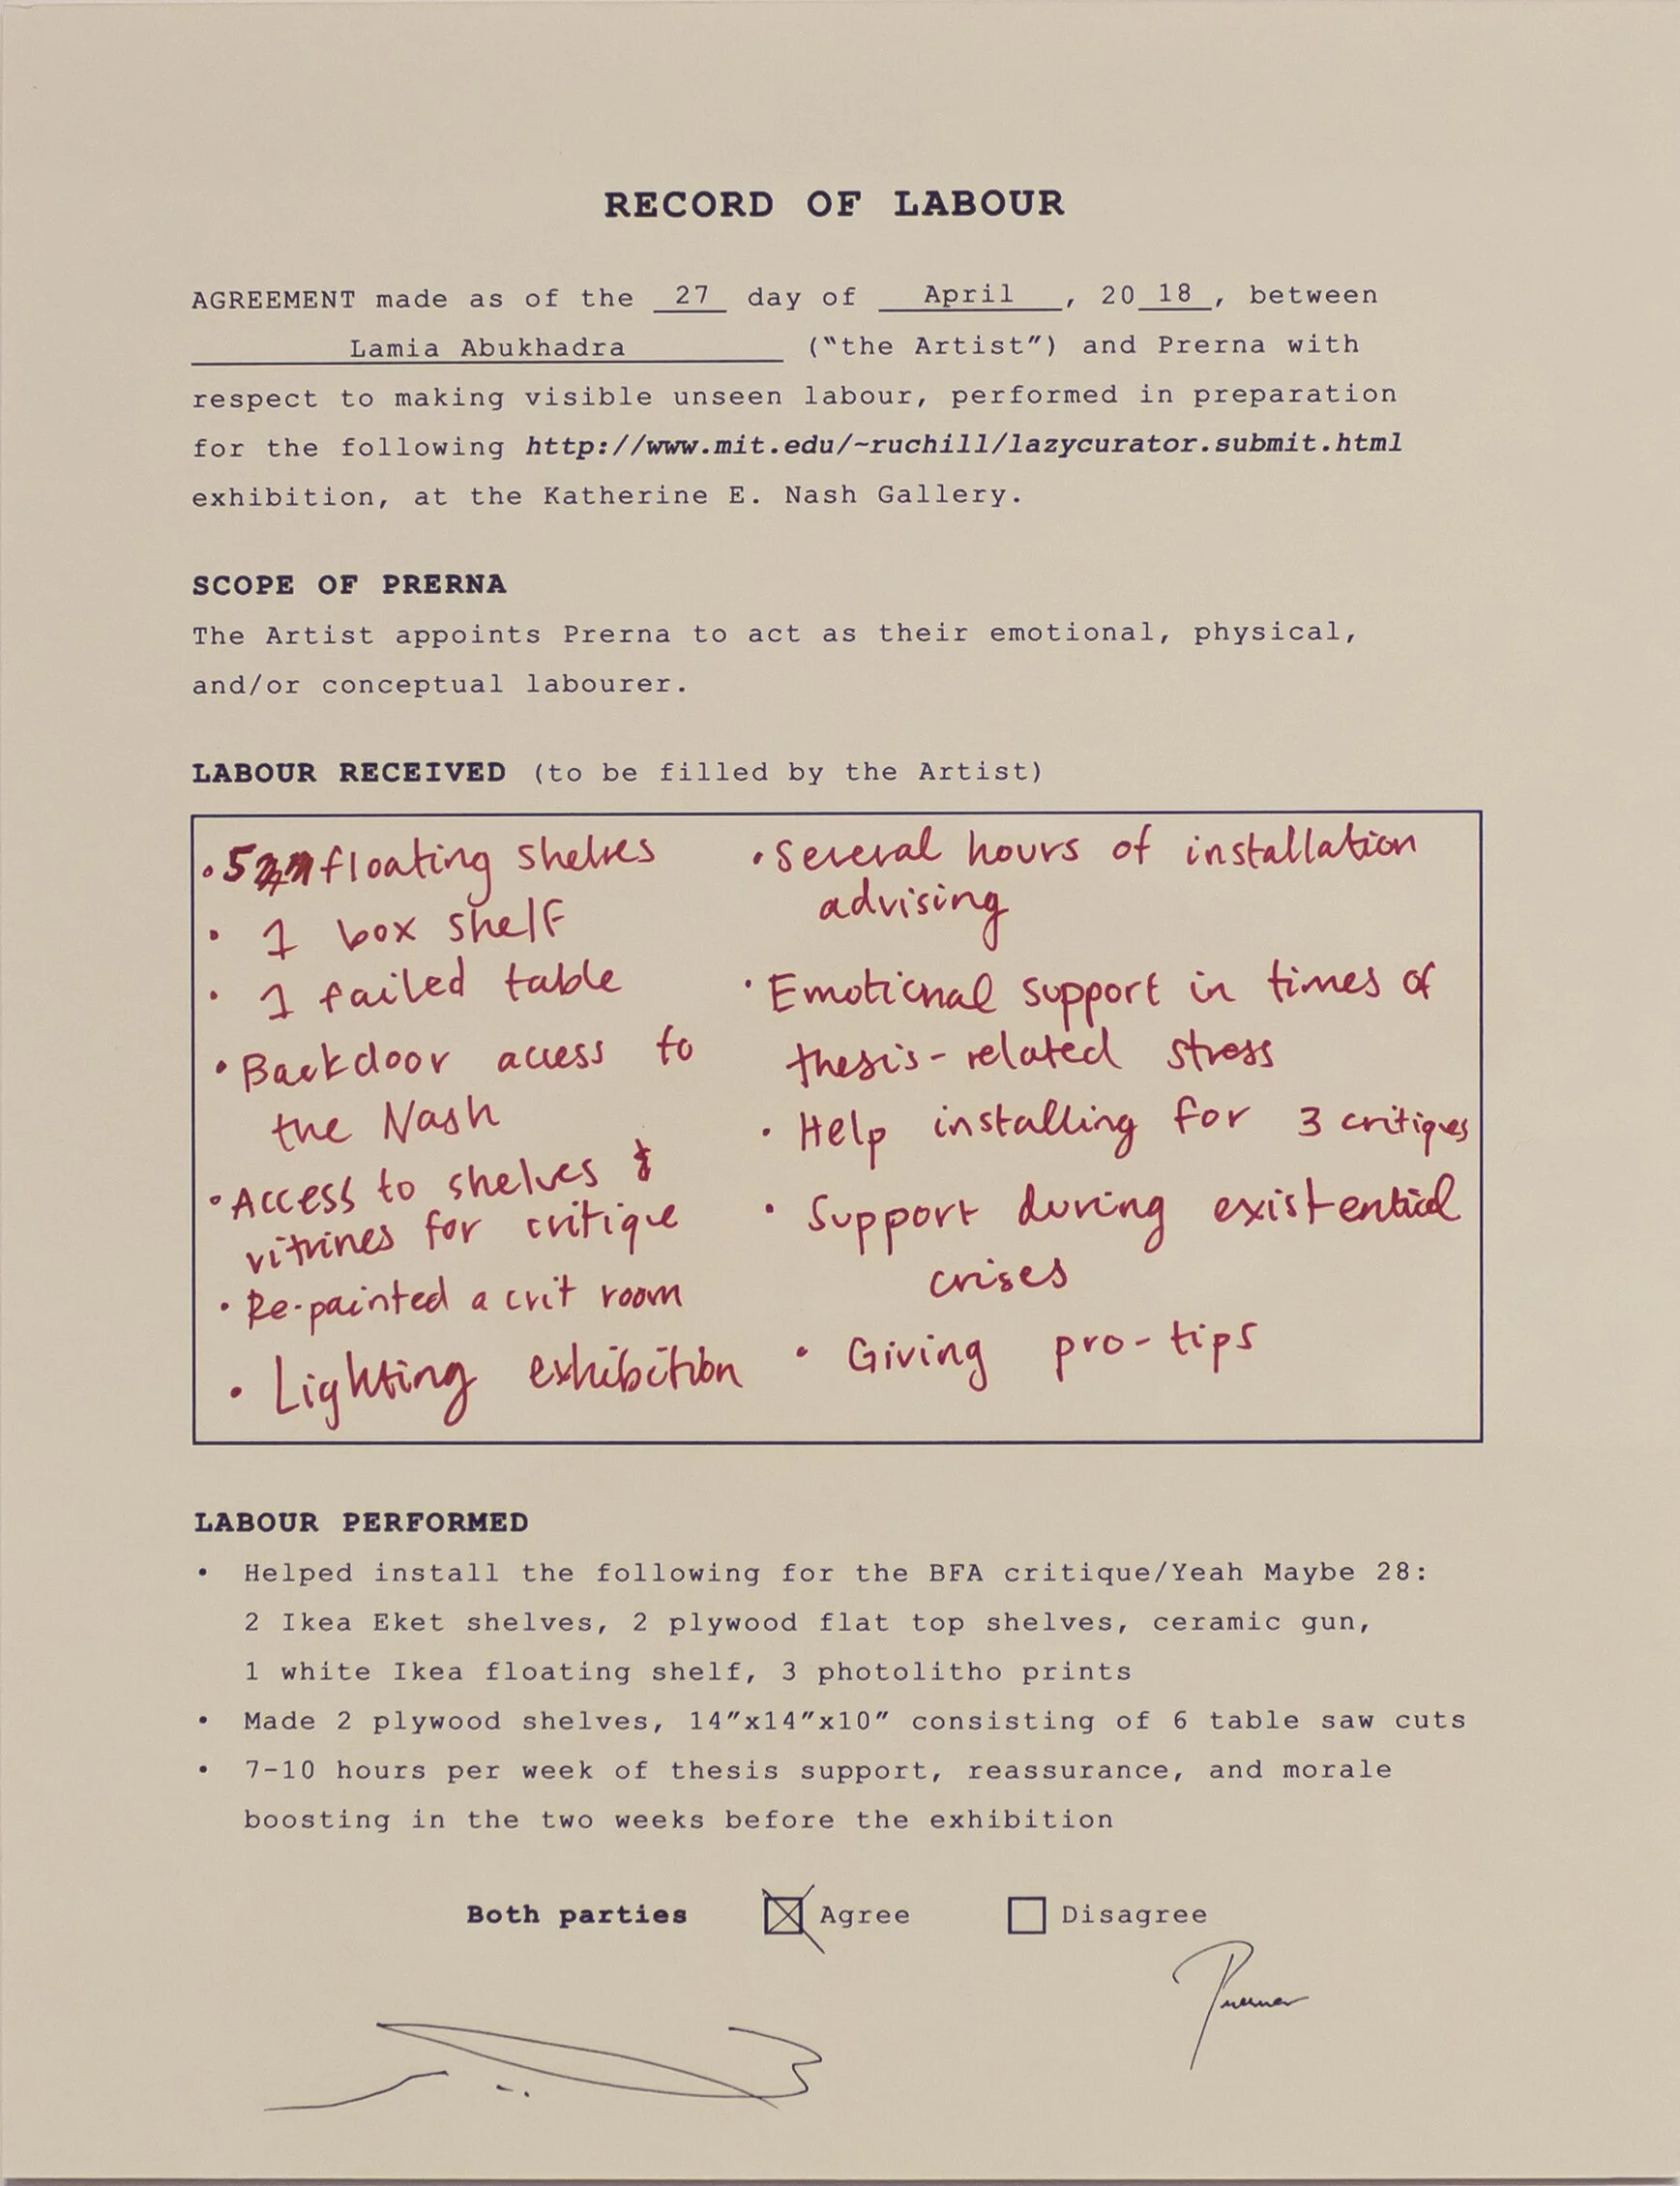 RECORD OF LABOUR
AGREEMENT made as of the 27 day of April, 20 18, between
Lamia Abukhadra ("the Artist") and Prerna with
respect to making visible unseen labour, performed in preparation
for the following http://www.mit.edu/~ruchill/lazycurator.submit.html
exhibition, at the Katherine E. Nash Gallery.
SCOPE OF PRERNA
The Artist appoints Prerna to act as their emotional, physical,
and/or conceptual labourer.
LABOUR RECEIVED (to be filled by the Artist)
• 5 floating shelves
• 1 box shelf
• 1 failed table
• Backdoor access to
the Nash
• Access to shelves &
vitrines for critique
• Re-painted a crit room
• Lighting exhibition
• Several hours of installation
advising
• Emotional support in times of
thesis-related stress
• Help installing for 3 critiques
• Support during existential
crises
• Giving pro-tips
LABOUR PERFORMED
• Helped install the following for the BFA critique/Yeah Maybe 28:
2 Ikea Eket shelves, 2 plywood flat top shelves, ceramic gun,
1 white Ikea floating shelf, 3 photolitho prints
• Made 2 plywood shelves, 14"x14"x10" consisting of 6 table saw cuts
• 7-10 hours per week of thesis support, reassurance, and morale
boosting in the two weeks before the exhibition
Both parties Agree Disagree
Prerna